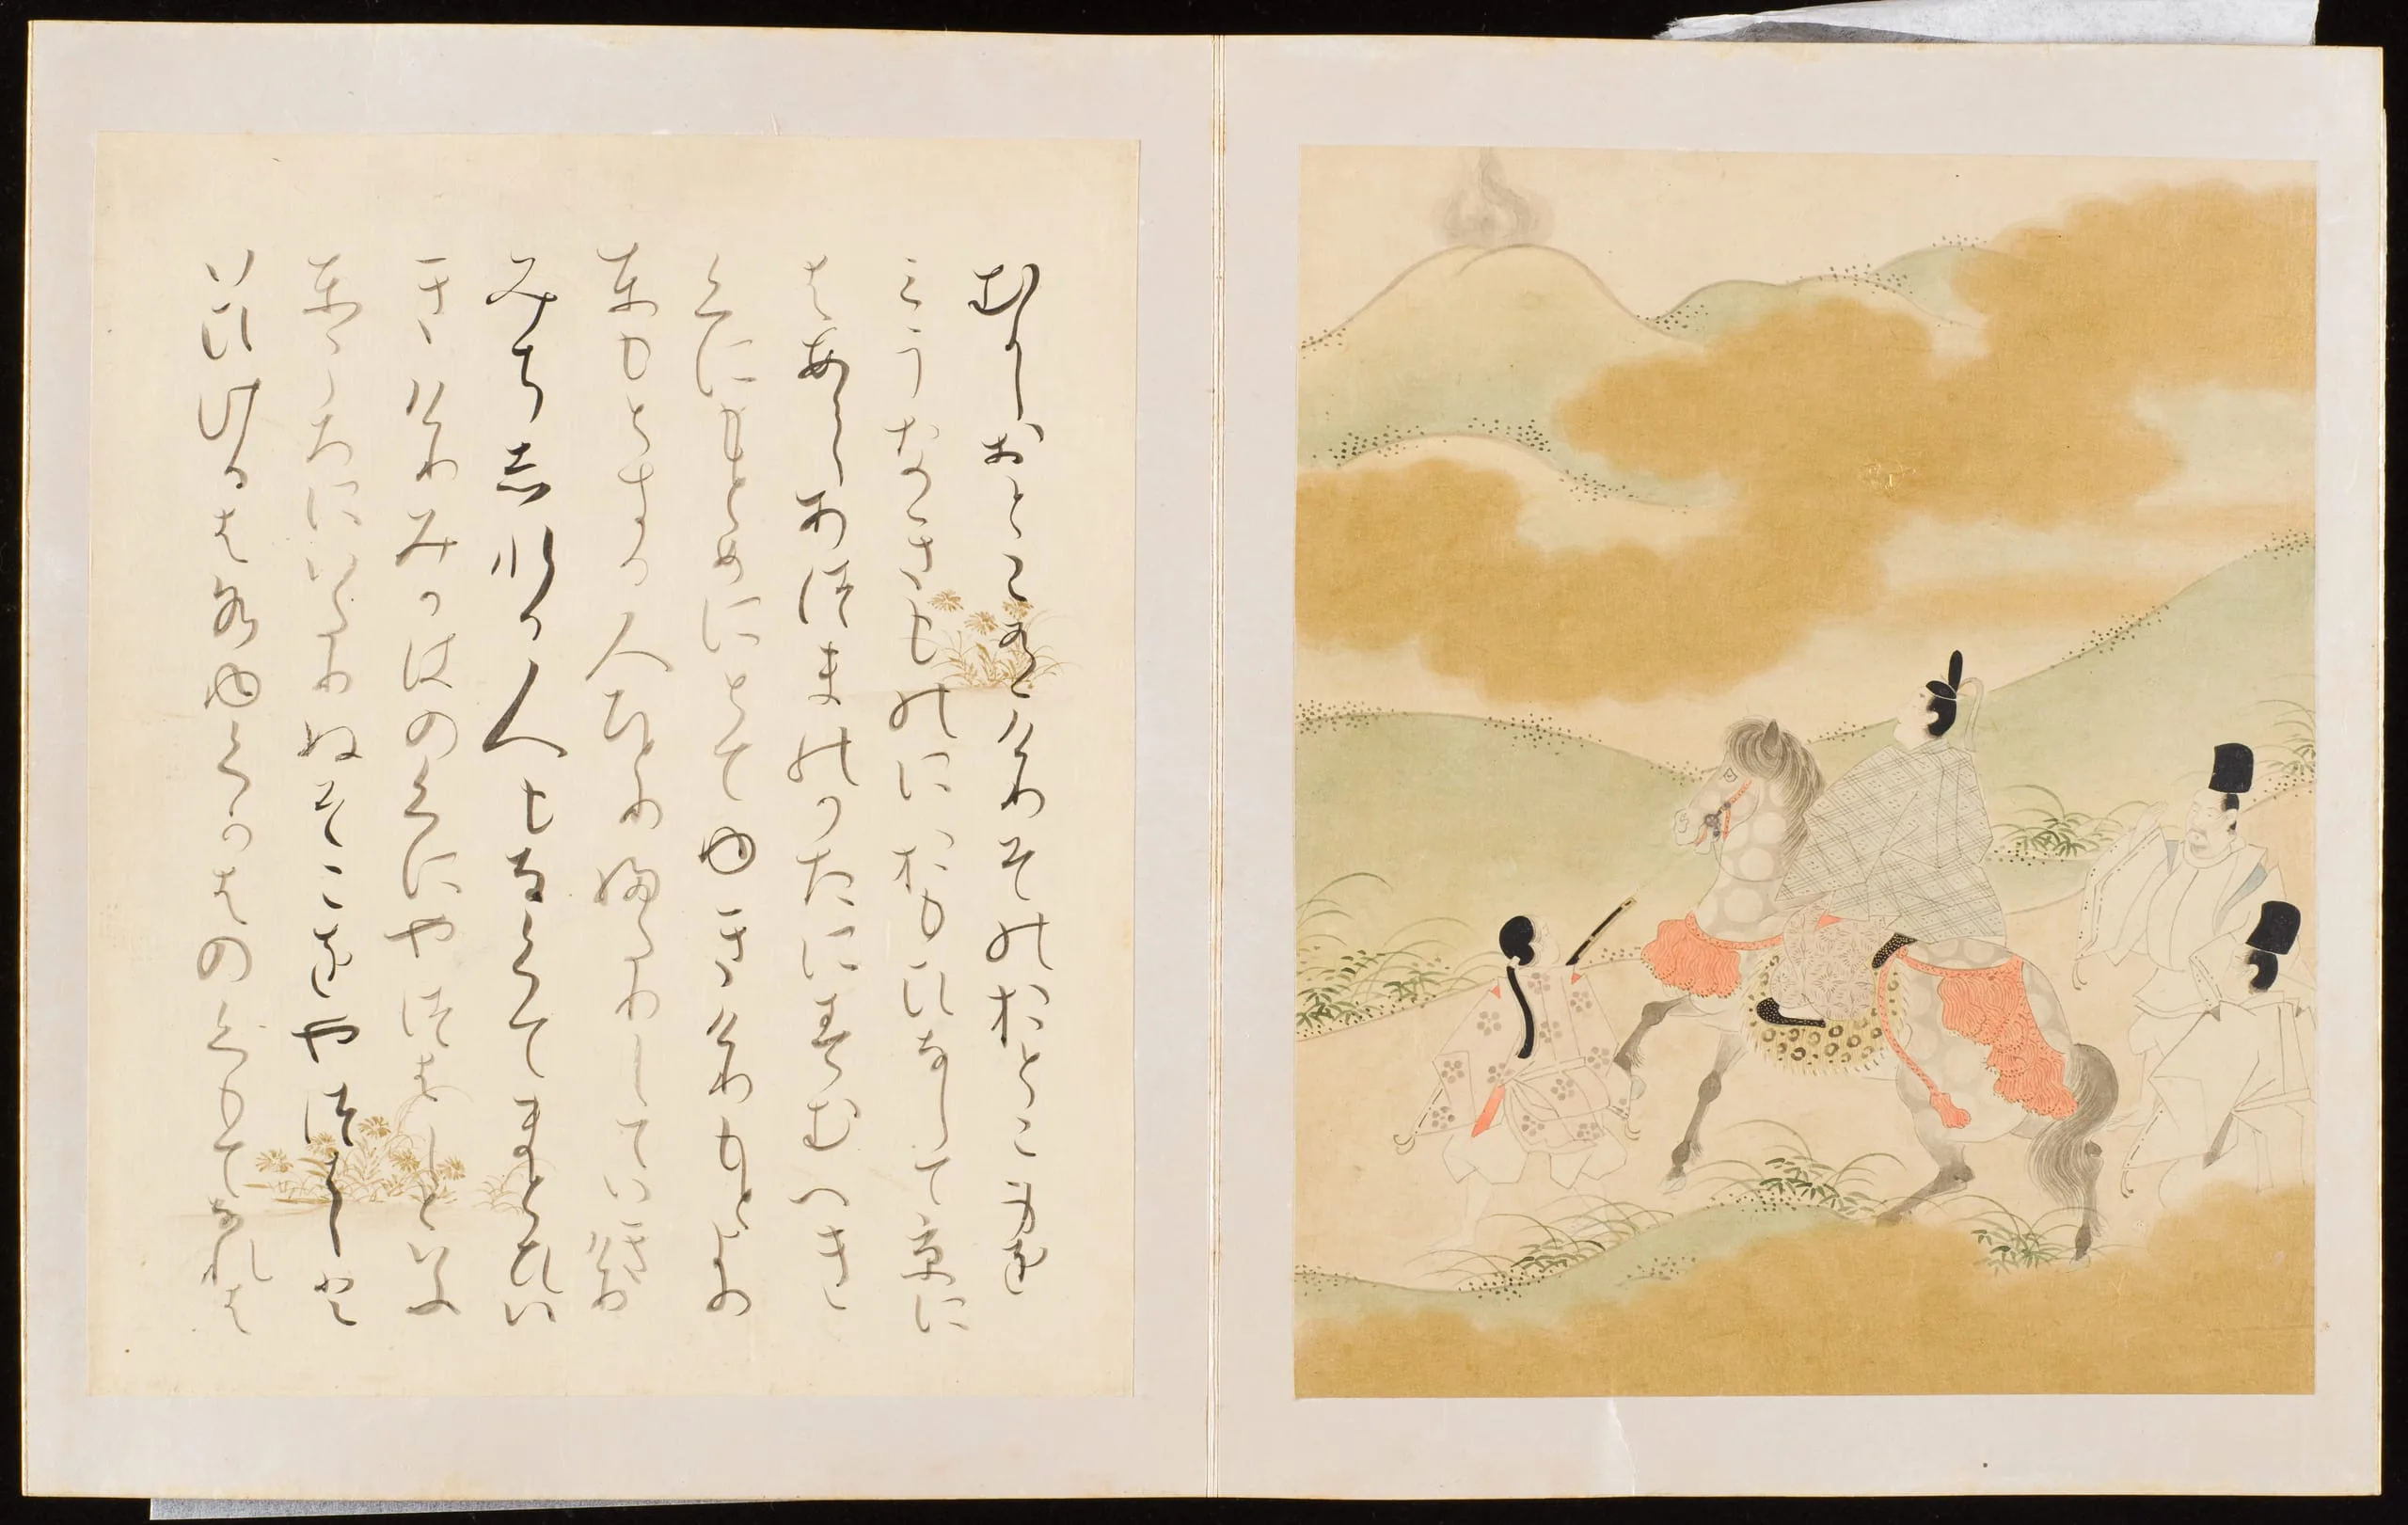 むかしおとこありけりそのおとこみを
えうなきものにおもひなして京に
はあらしあつまのかたにすむへき
くにもとめにとてゆきけりもと
よりともとする人ひとりふたりしていきけり
みちしれる人もなくてまとひい
きけりみかはのくにやつはしといふ
ところにいたりぬそこをやつはしと
いひけるは水ゆくかはのくもてなれは